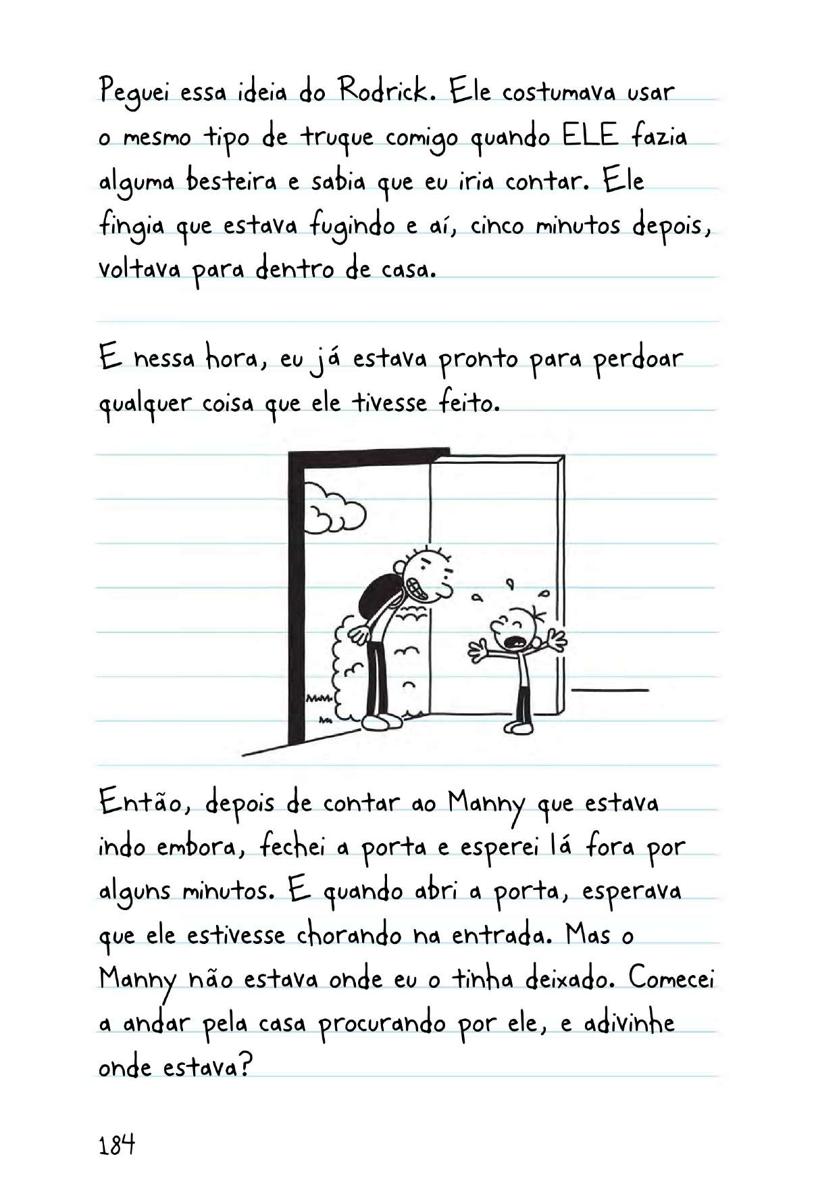 Peguei essa ideia do Rodrick. Ele costumava usar
o mesmo tipo de truque comigo quando ELE fazia
alguma besteira e sabia que eu iria contar. Ele
fingia que estava fugindo e aí, cinco minutos depois,
voltava para dentro de casa.
E nessa hora, eu já estava pronto para perdoar
qualquer coisa que ele tivesse feito.
Então, depois de contar ao Manny que estava
indo embora, fechei a porta e esperei lá fora por
alguns minutos. E quando abri a porta, esperava
que ele estivesse chorando na entrada. Mas o
Manny não estava onde eu o tinha deixado. Comecei
a andar pela casa procurando por ele, e adivinhe
onde estava?
184